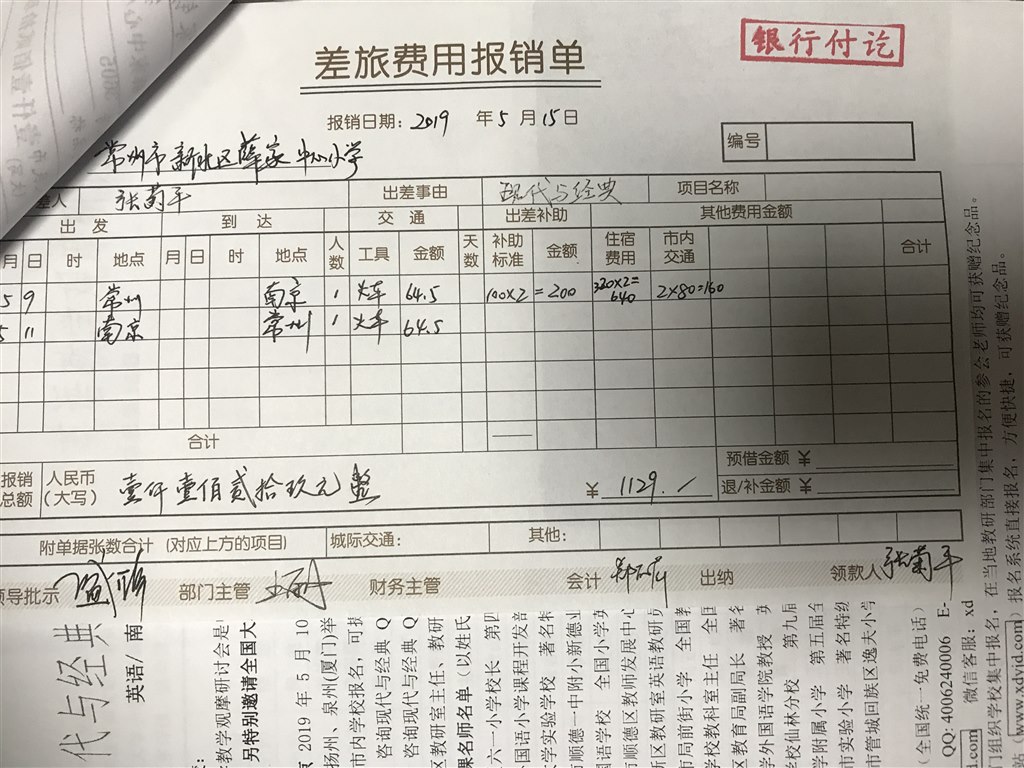 银行付讫
差旅费用报销单
报销日期：2019 年 5 月 15 日
编号
常州市新北区薛家中心小学
差人 张菊平 出差事由 现代与经典 项目名称
出 发 到 达 交 通 出差补助 其他费用金额
月 日 时 地点 月 日 时 地点 人数 工具 金额 天数 补助标准 金额 住宿费用 市内交通 合计
5 9 常州 南京 1 火车 64.5 100×2 = 200 320×2=640 2×80=160
5 11 南京 常州 1 火车 64.5
合计
报销总额 人民币（大写） 壹仟壹佰贰拾玖元整 ¥ 1129.
预借金额 ¥
退/补金额 ¥
附单据张数合计 (对应上方的项目) 城际交通： 其他：
领导批示 部门主管 财务主管 会计 出纳 领款人 张菊平
代与经典
英语/南
教学观摩研讨会是
另特别邀请全国大
2019 年 5 月 10
扬州、泉州(厦门)举
市内学校报名，可
咨询现代与经典 Q
咨询现代与经典 Q
区教研室主任、教研
课名师名单（以姓氏
六一小学校长 第四
国语小学课程开发
学实验学校 著名特
顺德一中附小新德业
国语学校 全国小学英
市顺德区教师发展中心
区教研室英语教研
市局前街小学 全国
学校教科室主任 全
区教育局副局长 著
学外国语学院教授
校仙林分校 第九届
学附属小学 第五届全
市实验小学 著名特级
市管城回族区逸夫小学
(全国统一免费电话)
QQ: 4006240006 E-
微信客服：xd
门组织学校集中报名，在当地教研部门集中报名的参会老师均可获赠纪念品。
站 (www.xdyjd.com) 报名系统直接报名，方便快捷，可获赠纪念品。